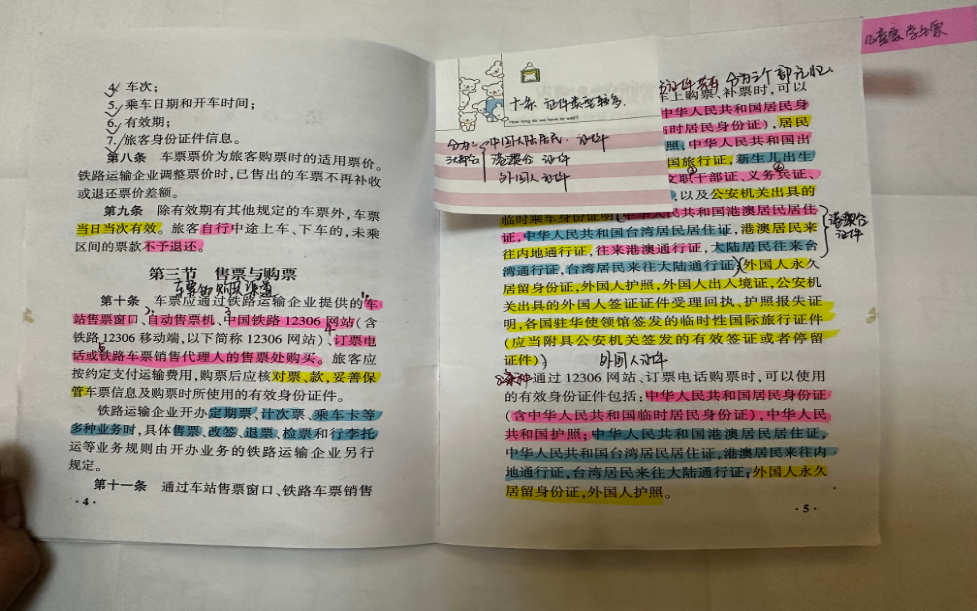 4. 车次;
5. 乘车日期和开车时间;
6. 有效期;
7. 旅客身份证件信息。
第八条 车票票价为旅客购票时的适用票价。
铁路运输企业调整票价时,已售出的车票不再补收
或退还票价差额。
第九条 除有效期有其他规定的车票外,车票
当日当次有效。旅客自行中途上车、下车的,未乘
区间的票款不予退还。
第三节 售票与购票
第十条 车票应通过铁路运输企业提供的车
站售票窗口、自动售票机、中国铁路 12306 网站(含
铁路 12306 移动端,以下简称 12306 网站)、订票电
话或铁路车票销售代理人的售票处购买。旅客应
按约定支付运输费用,购票后应核对票、款,妥善保
管车票信息及购票时所使用的有效身份证件。
铁路运输企业开办定期票、计次票、乘车卡等
多种业务时,具体售票、改签、退票、检票和行李托
运等业务规则由开办业务的铁路运输企业另行
规定。
第十一条 通过车站售票窗口、铁路车票销售
·4·
How long do we have to wait?
分为
三大部分
中国大陆居民 证件
港澳台 证件
外国人 证件
车上购票、补票时,可以
中华人民共和国居民身
时居民身份证),居民
照,中华人民共和国出
国旅行证,新生儿出生
文职干部证、义务兵证、
以及公安机关出具的
临时乘车身份证明;中华人民共和国港澳居民居住
证,中华人民共和国台湾居民居住证,港澳居民来
往内地通行证,往来港澳通行证,大陆居民往来台
湾通行证,台湾居民来往大陆通行证;外国人永久
居留身份证,外国人护照,外国人出入境证,公安机
关出具的外国人签证证件受理回执、护照报失证
明,各国驻华使领馆签发的临时性国际旅行证件
(应当附具公安机关签发的有效签证或者停留
证件)。
港澳台
证件
外国人证件
通过 12306 网站、订票电话购票时,可以使用
的有效身份证件包括:中华人民共和国居民身份证
(含中华人民共和国临时居民身份证),中华人民
共和国护照;中华人民共和国港澳居民居住证,
中华人民共和国台湾居民居住证,港澳居民来往内
地通行证,台湾居民来往大陆通行证;外国人永久
居留身份证,外国人护照。
·5·